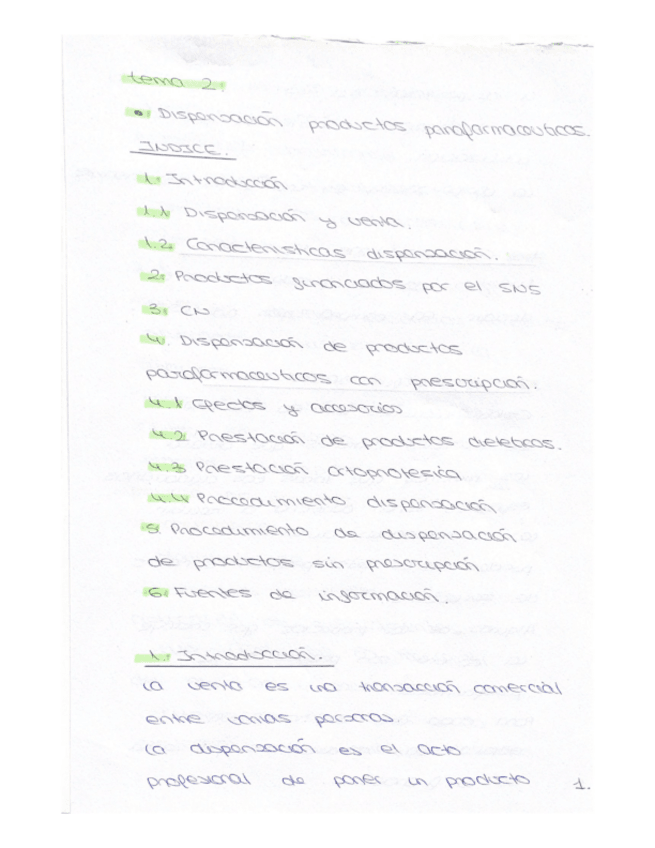 tema 2:
• Dispensación productos parafarmaceuticos.
INDICE.
1. Introducción
1.1 Dispensación y venta.
1.2. Características dispensación.
2. Productos financiados por el SNS
3. CN
4. Dispensación de productos
parafarmaceuticos con prescripción.
4.1 Efectos y accesorios
4.2 Prestación de productos dieteticos.
4.3 Prestación ortoprotesica
4.4 Procedimiento dispensación
5. Procedimiento de dispensación
de productos sin prescripción
6. Fuentes de información.
1. Introducción.
La venta es una transacción comercial
entre varias personas.
La dispensación es el acto
profesional de poner un producto
1.